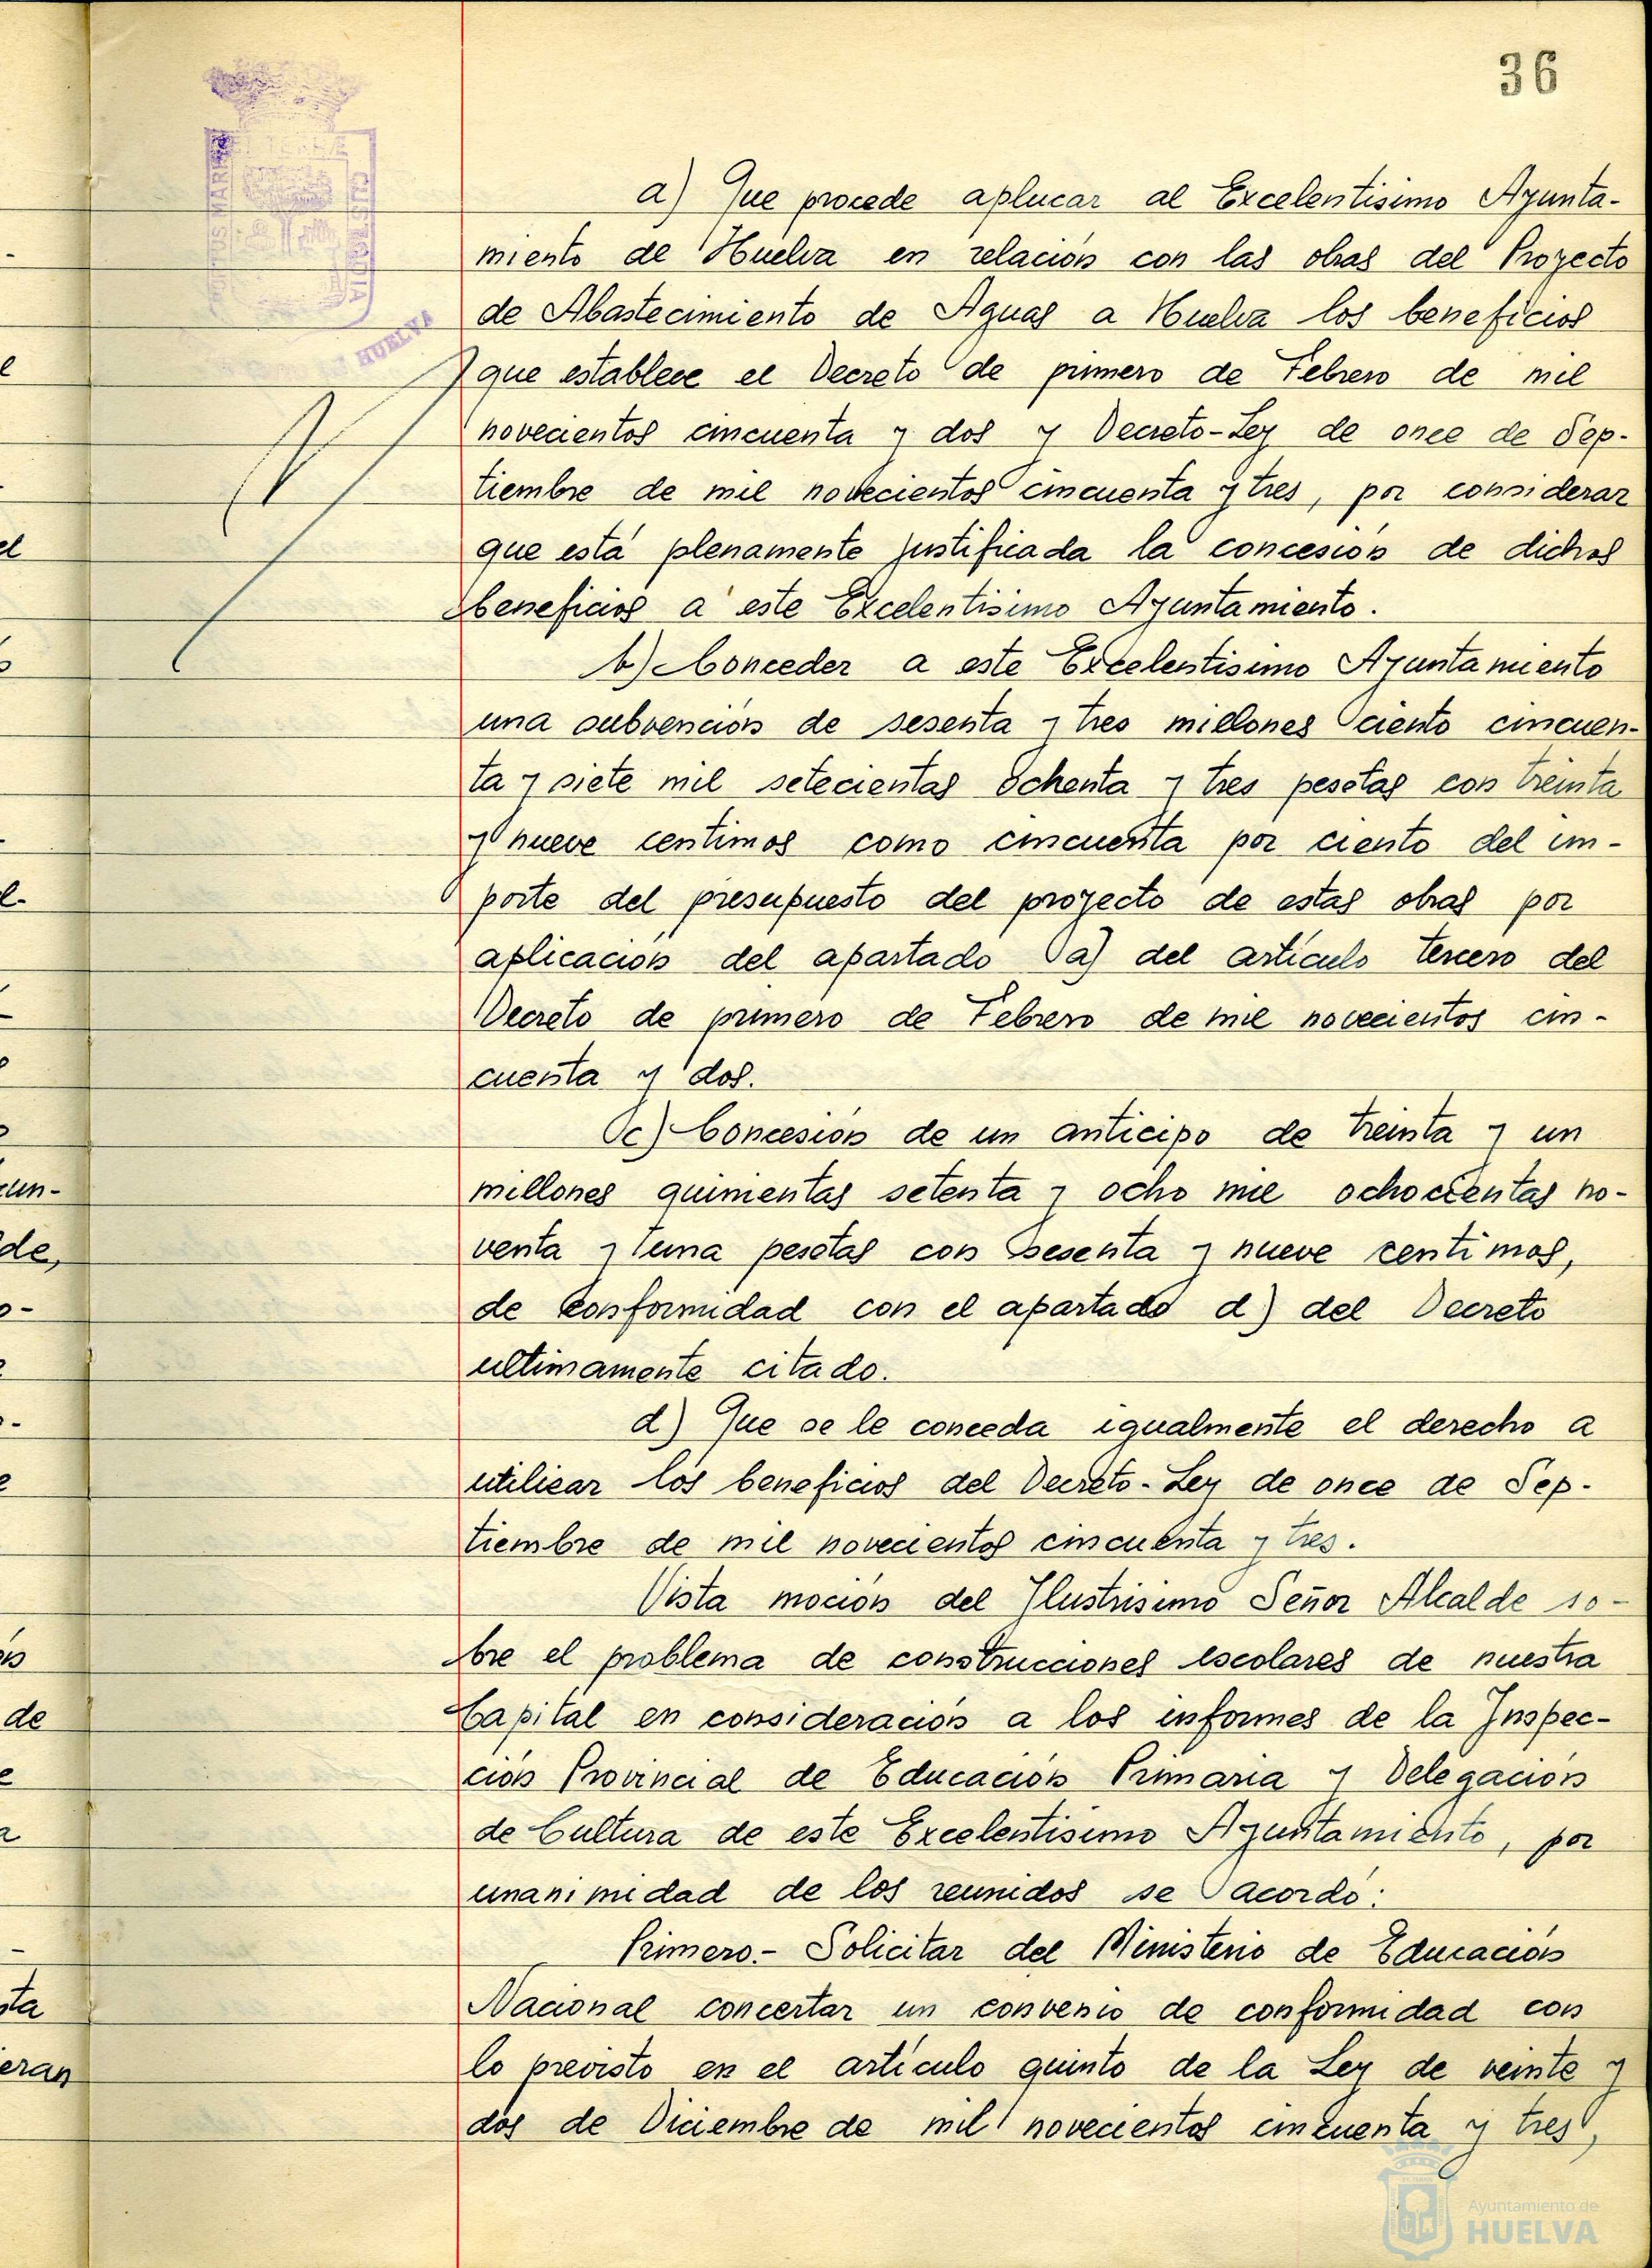 36
PORTUS MARIS
ET TERRÆ
CUSTODIA
HUELVA
a) Que procede aplucar al Excelentisimo Ayunta-
miento de Huelva en relación con las obras del Proyecto
de Abastecimiento de Aguas a Huelva los beneficios
que establece el Decreto de primero de Febrero de mil
novecientos cincuenta y dos y Decreto-Ley de once de Sep-
tiembre de mil novecientos cincuenta y tres, por considerar
que está plenamente justificada la concesión de dichos
beneficios a este Excelentisimo Ayuntamiento.
b) Conceder a este Excelentisimo Ayuntamiento
una subvención de sesenta y tres millones ciento cincuen-
ta y siete mil setecientas ochenta y tres pesetas con treinta
y nueve centimos como cincuenta por ciento del im-
porte del presupuesto del proyecto de estas obras por
aplicación del apartado a) del artículo tercero del
Decreto de primero de Febrero de mil novecientos cin-
cuenta y dos.
c) Concesión de un anticipo de treinta y un
millones quinientas setenta y ocho mil ochocientas no-
venta y una pesetas con sesenta y nueve centimos,
de conformidad con el apartado d) del Decreto
ultimamente citado.
d) Que se le conceda igualmente el derecho a
utilizar los beneficios del Decreto-Ley de once de Sep-
tiembre de mil novecientos cincuenta y tres.
Vista moción del Ilustrisimo Señor Alcalde so-
bre el problema de construcciones escolares de nuestra
Capital en consideración a los informes de la Inspec-
ción Provincial de Educación Primaria y Delegación
de Cultura de este Excelentisimo Ayuntamiento, por
unanimidad de los reunidos se acordó:
Primero.- Solicitar del Ministerio de Educación
Nacional concertar un convenio de conformidad con
lo previsto en el artículo quinto de la Ley de veinte y
dos de Diciembre de mil novecientos cincuenta y tres,
Ayuntamiento de
HUELVA